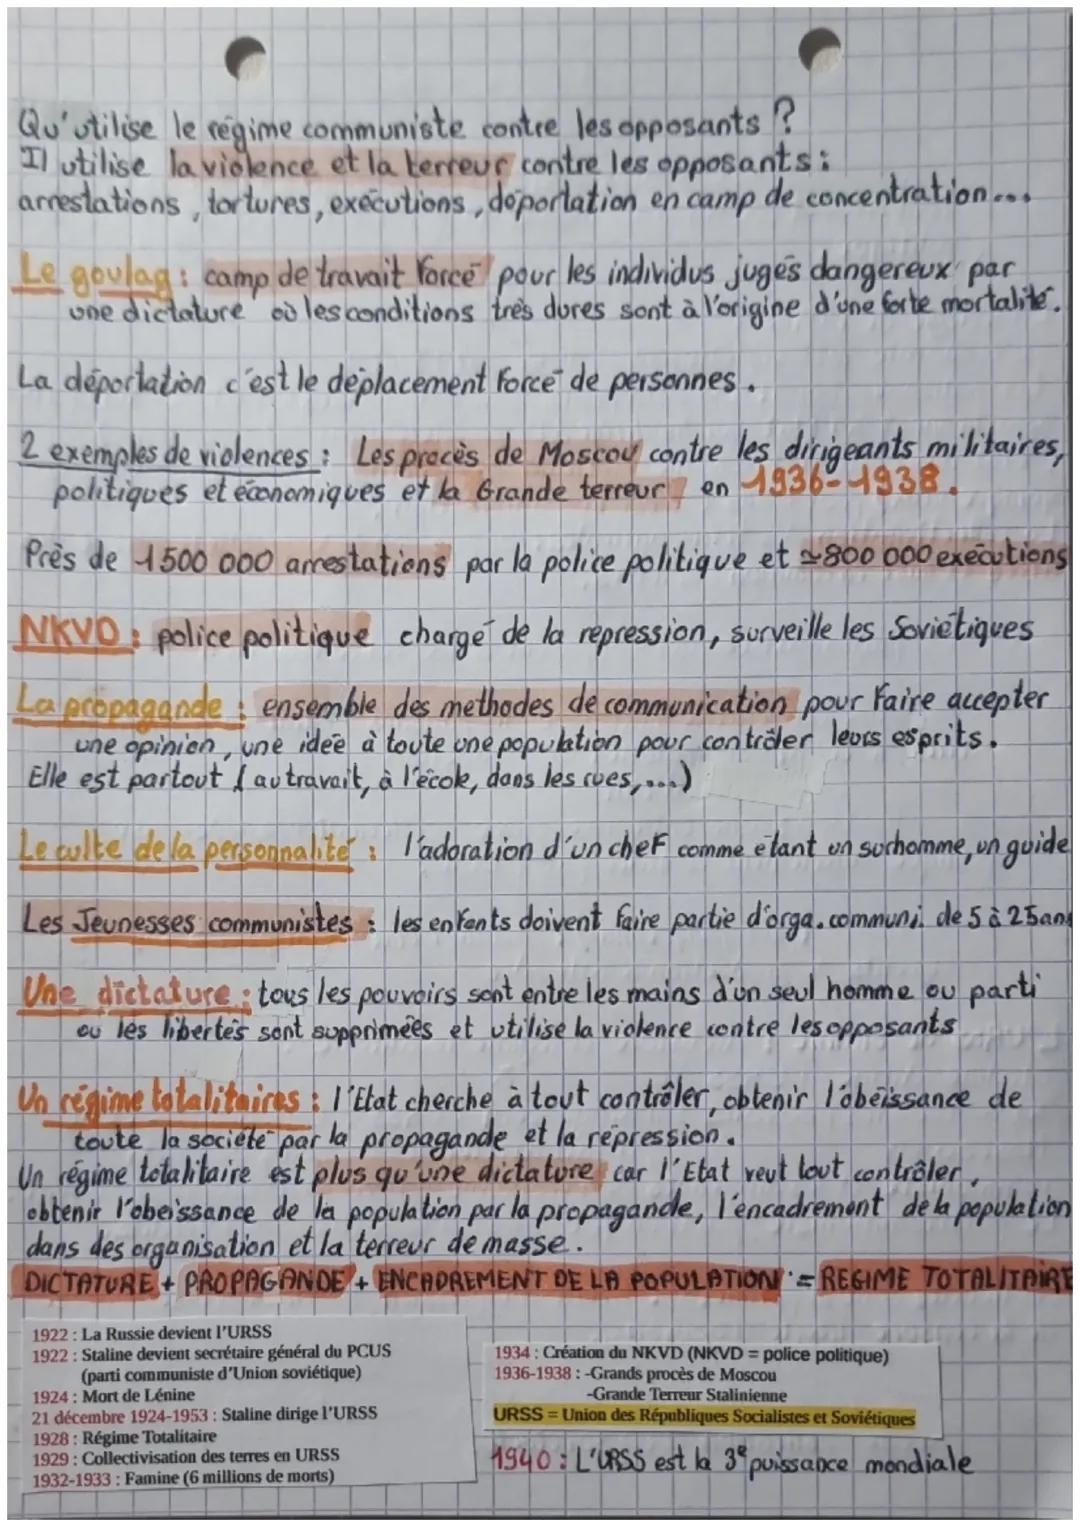 Qu'utilise le régime communiste contre les opposants ?
Il utilise la violence et la terreur contre les opposants :
arrestations, tortures, exécutions, déportation en camp de concentration...
Le goulag : camp de travait forcé pour les individus jugés dangereux par
une dictature où les conditions très dures sont à l'origine d'une forte mortalité.
La déportation c'est le déplacement forcé de personnes.
2 exemples de violences : Les procès de Moscou contre les dirigeants militaires,
politiques et économiques et la Grande terreur en 1936-1938.
Près de 1500 000 arrestations par la police politique et ≃800 000 exécutions
NKVD : police politique chargé de la répression, surveille les Soviétiques
La propagande : ensemble des méthodes de communication pour faire accepter
une opinion, une idée à toute une population pour contrôler leurs esprits.
Elle est partout (au travait, à l'école, dans les rues,...)
Le culte de la personnalité : l'adoration d'un chef comme étant un surhomme, un guide
Les Jeunesses communistes : les enfants doivent faire partie d'orga. communi. de 5 à 25ans
Une dictature : tous les pouvoirs sont entre les mains d'un seul homme ou parti
ou les libertés sont supprimées et utilise la violence contre les opposants
Un régime totalitaires : l'Etat cherche à tout contrôler, obtenir l'obéissance de
toute la société par la propagande et la répression.
Un régime totalitaire est plus qu'une dictature car l'Etat veut tout contrôler,
obtenir l'obéissance de la population par la propagande, l'encadrement de la population
dans des organisation et la terreur de masse.
DICTATURE + PROPAGANDE + ENCADREMENT DE LA POPULATION = REGIME TOTALITAIRE
1922 : La Russie devient l'URSS
1922 : Staline devient secrétaire général du PCUS
(parti communiste d'Union soviétique)
1924 : Mort de Lénine
21 décembre 1924-1953 : Staline dirige l'URSS
1928 : Régime Totalitaire
1929 : Collectivisation des terres en URSS
1932-1933 : Famine (6 millions de morts)
1934 : Création du NKVD (NKVD = police politique)
1936-1938 : -Grands procès de Moscou
-Grande Terreur Stalinienne
URSS = Union des Républiques Socialistes et Soviétiques
1940 : L'URSS est la 3e puissance mondiale